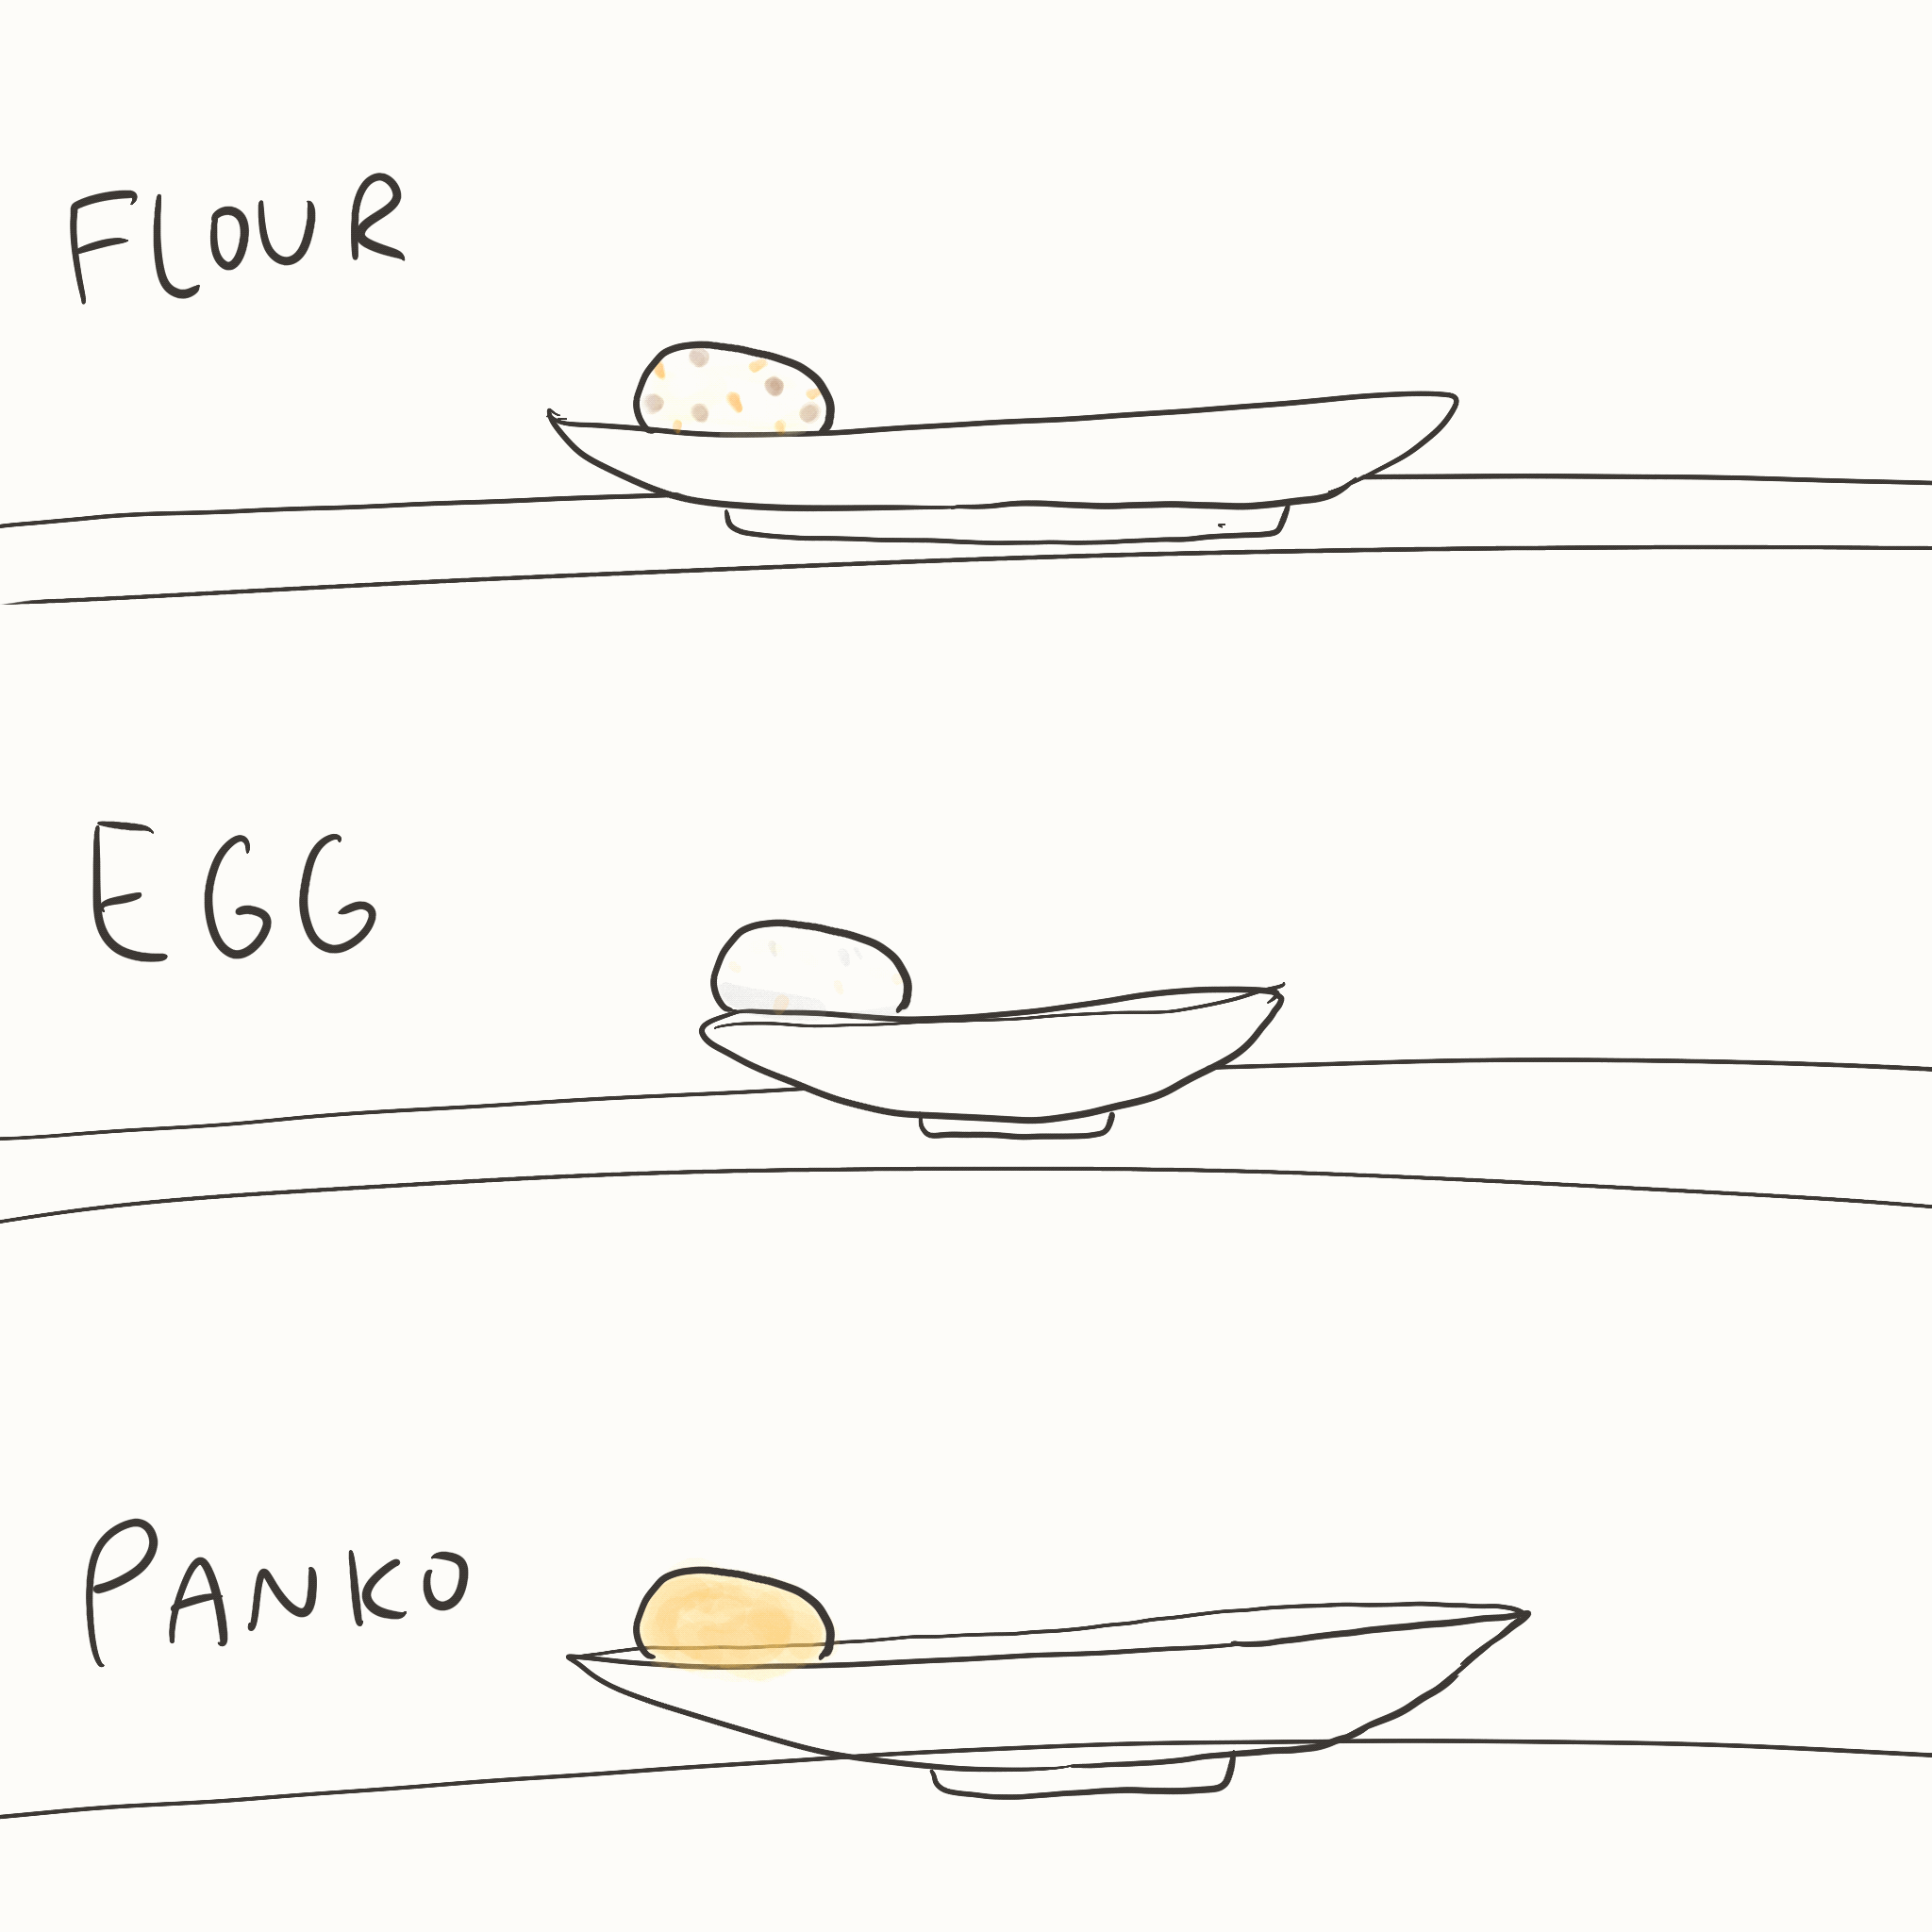 FLOUR
EGG
PANKO